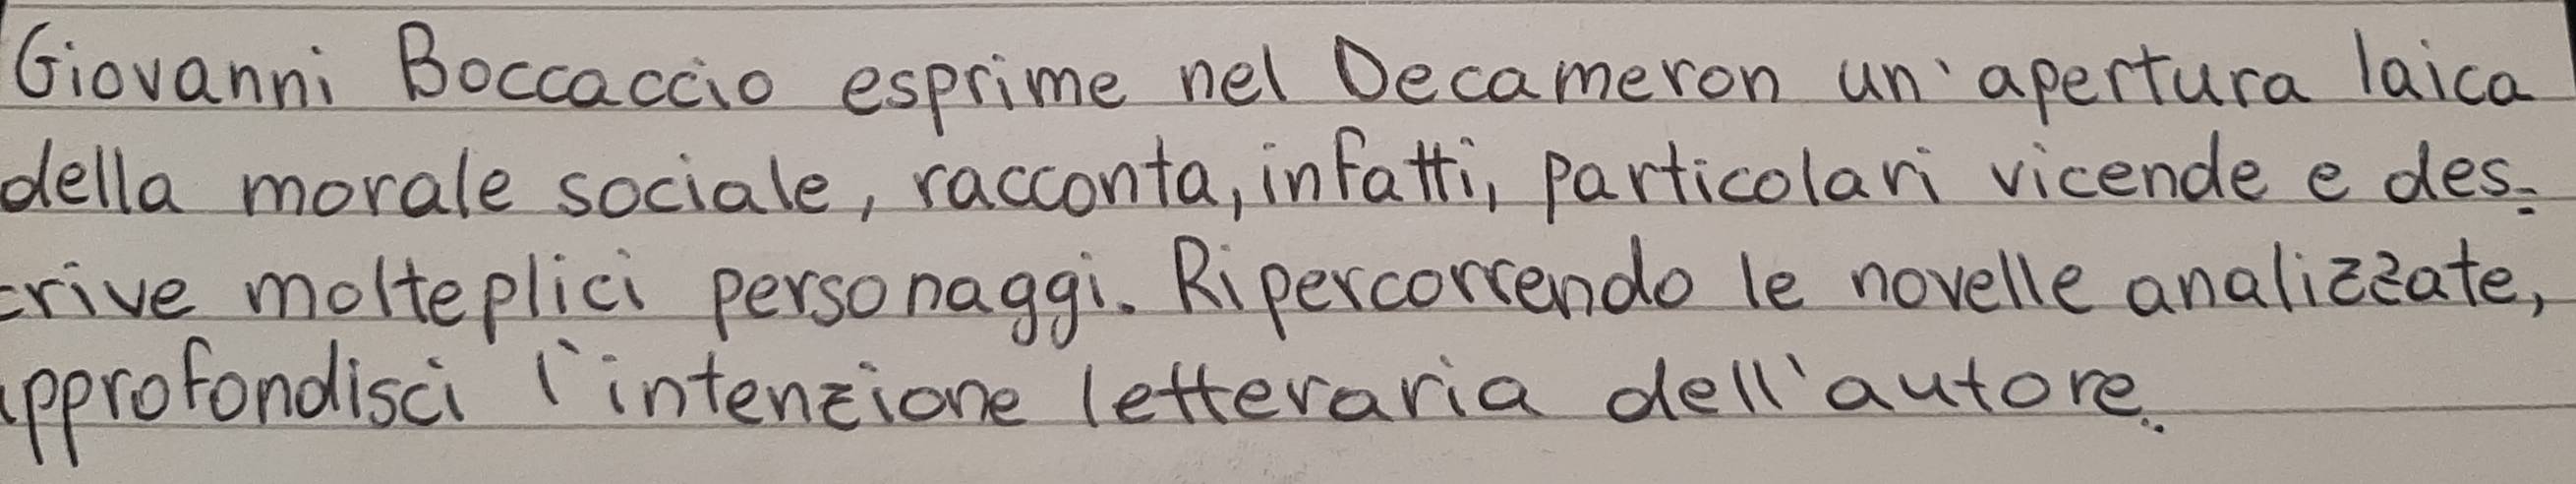 Giovanni Boccaccio esprime nel Decameron un'apertura laica
della morale sociale, racconta, infatti, particolari vicende e des=
crive molteplici personaggi. Ripercorrendo le novelle analizzate,
approfondisci l'intenzione letteraria dell'autore.